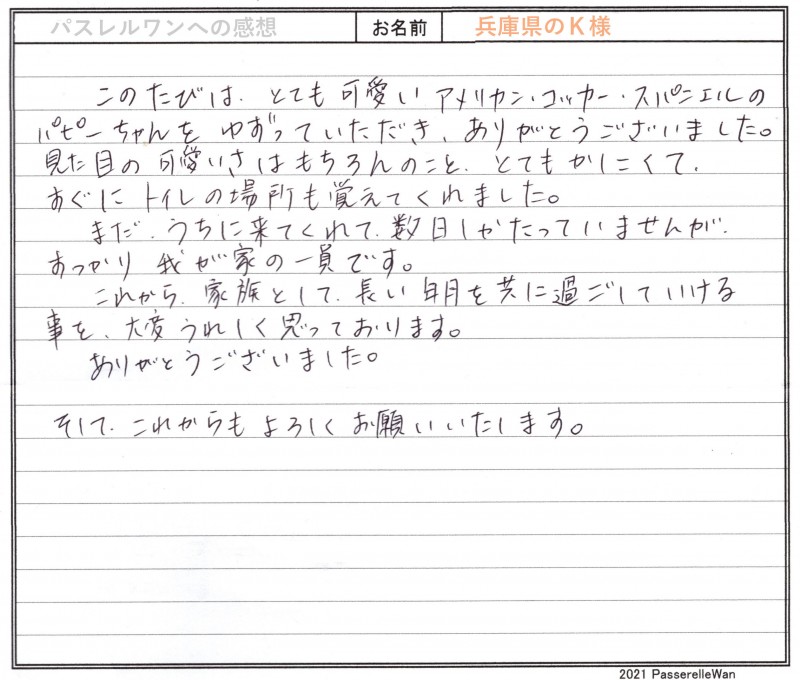 パスレルワンへの感想 お名前 兵庫県のK様
このたびは、とても可愛いアメリカン・コッカー・スパニエルの
パピーちゃんをゆずっていただき、ありがとうございました。
見た目の可愛いさはもちろんのこと、とてもかしこくて、
すぐにトイレの場所も覚えてくれました。
まだ、うちに来てくれて、数日しかたっていませんが、
すっかり我が家の一員です。
これから、家族として、長い年月を共に過ごしていける
事を、大変うれしく思っております。
ありがとうございました。
そして、これからもよろしくお願いいたします。
2021 PasserelleWan